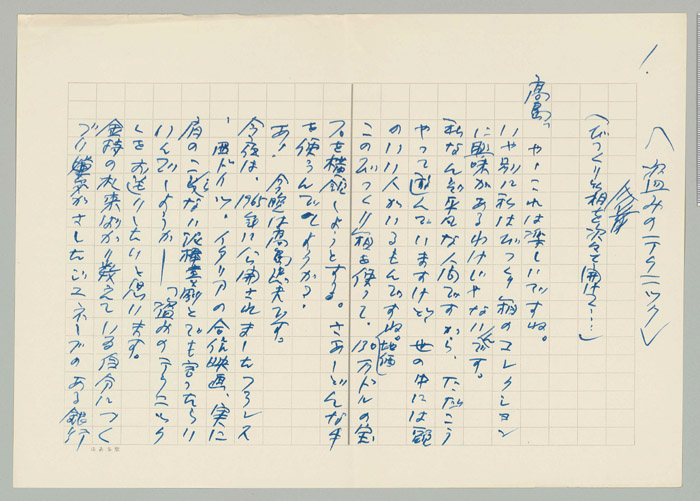 〈盗みのテクニック〉
（びっくり箱を次々と開けて……）
高島っ やーこれは楽しいですね。
いや別に私はびっくり箱のコレクション
に興味があるわけじゃないんです。
私なんぞ平凡な人間ですから、ただこう
やって遊んでいますけど、世の中には頭
のいい人がいるもんですね。時価
このびっくり箱を使って、130万ドルの宝
石を横領しようとする。さあーどんな手
を使うんでしょうか？
あ！今晩は高島忠夫です。
今夜は、1965年に公開されましたフランス
・西ドイツ・イタリアの合作映画、実に
肩のこらない泥棒喜劇とでも言ったらい
いんでしょうか──「盗みのテクニック
」をお送りしたいと思います。
金持の札束ばかり数えている自分につく
づく嫌気がさしたジュネーブのある銀行